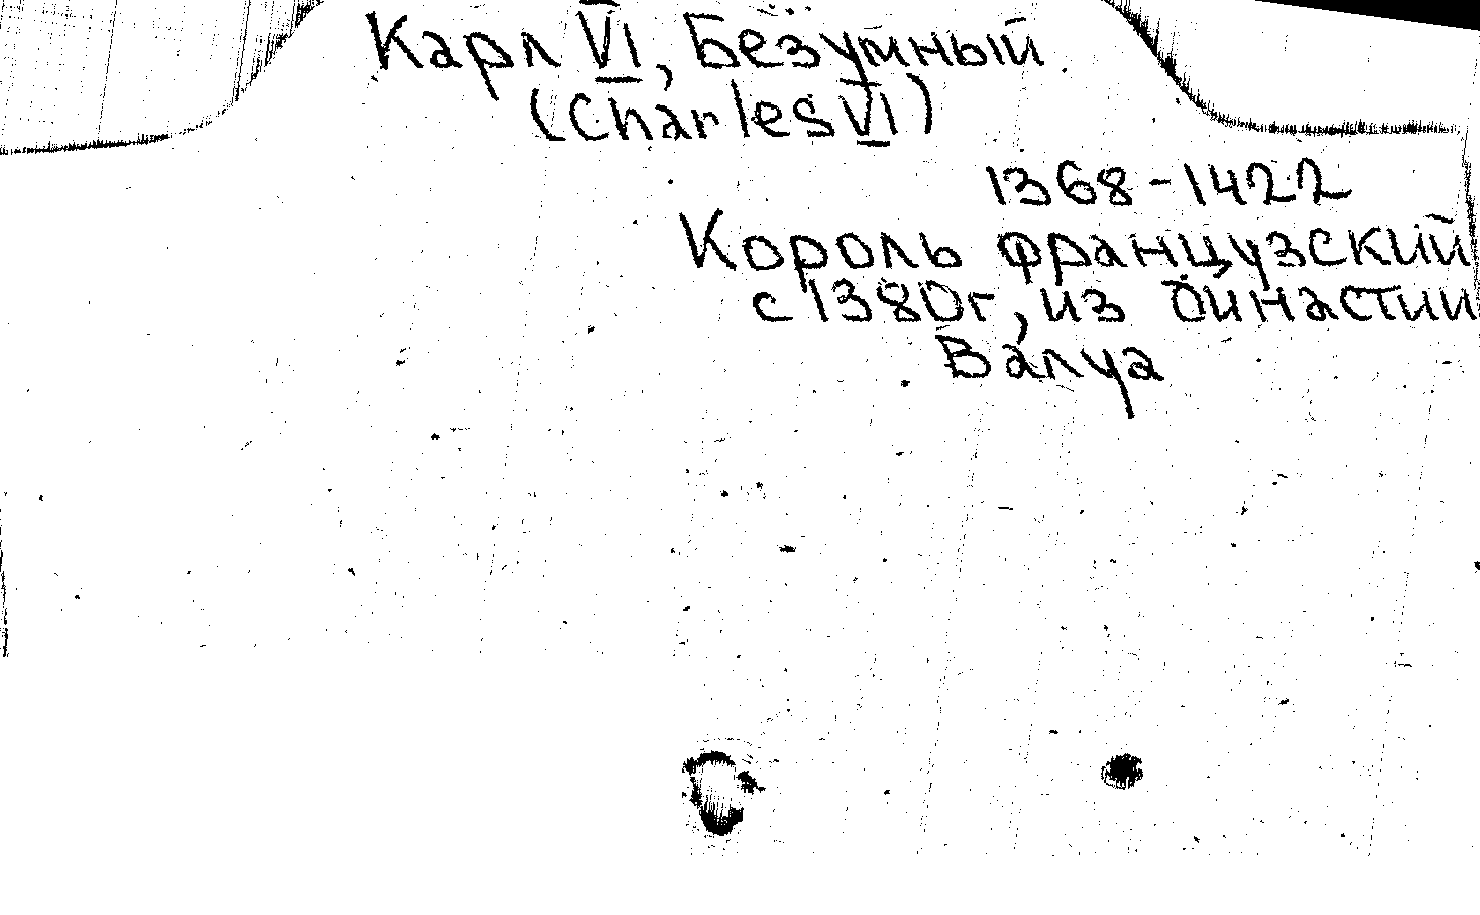 Карл VI, Безумный
(Charles VI)
1368-1422
Король французский
с 1380г, из династии
Валуа